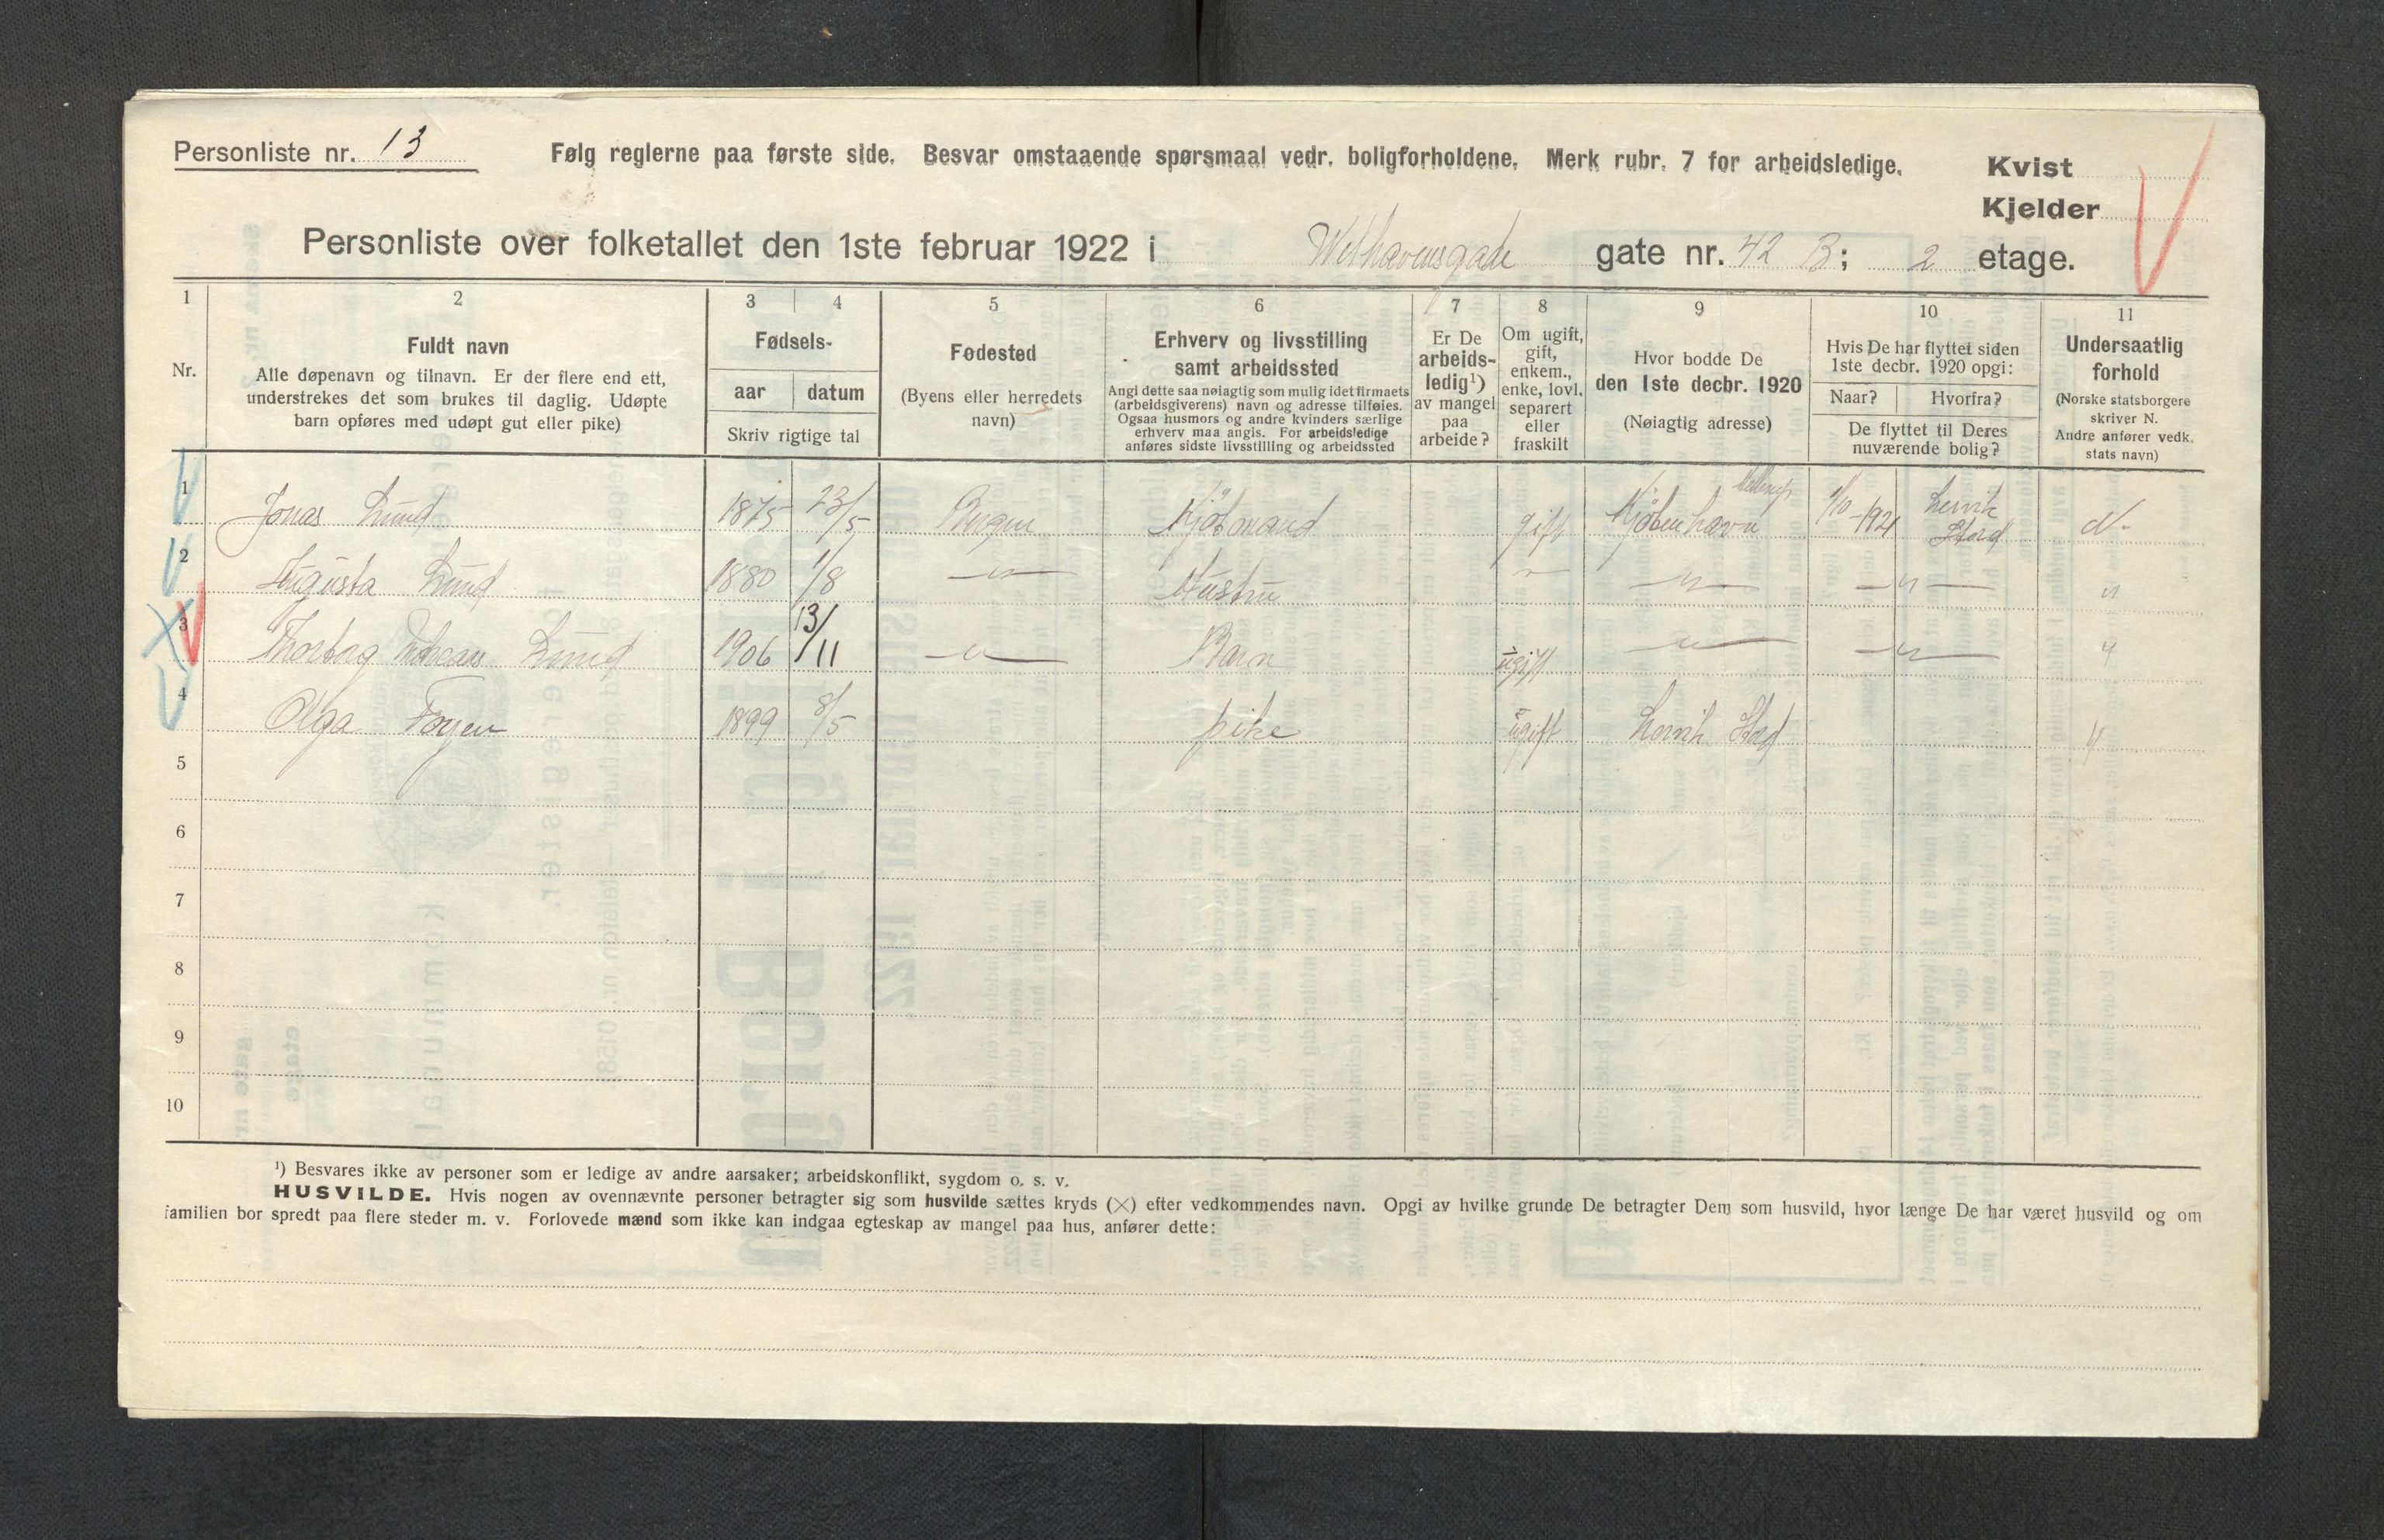 Personliste nr. 13
Følg reglerne paa første side. Besvar omstaaende spørsmaal vedr. boligforholdene. Merk rubr. 7 for arbeidsledige.
Kvist
Kjelder
Personliste over folketallet den 1ste februar 1922 i Welhavensgade gate nr. 42 B; 2 etage.
1 2 3 4 5 6 7 8 9 10 11
Nr.
Fuldt navn
Alle døpenavn og tilnavn. Er der flere end ett,
understrekes det som brukes til daglig. Udøpte
barn opføres med udøpt gut eller pike)
Fødsels-
aar datum
Skriv rigtige tal
Fødested
(Byens eller herredets
navn)
Erhverv og livsstilling
samt arbeidssted
Angi dette saa nøiagtig som mulig idet firmaets
(arbeidsgiverens) navn og adresse tilføies.
Ogsaa husmors og andre kvinders særlige
erhverv maa angis. For arbeidsledige
anføres sidste livsstilling og arbeidssted
Er De
arbeids-
ledig¹)
av mangel
paa
arbeide?
Om ugift,
gift,
enkem.,
enke, lovl.
separert
eller
fraskilt
Hvor bodde De
den 1ste decbr. 1920
(Nøiagtig adresse)
Hvis De har flyttet siden
1ste decbr. 1920 opgi:
Naar? Hvorfra?
De flyttet til Deres
nuværende bolig?
Undersaatlig
forhold
(Norske statsborgere
skriver N.
Andre anfører vedk.
stats navn)
1 Jonas Lund 1875 23/5 Bergen Kjøbmand gift Kjøbenhavn 1/10-1921 Lervik Stord N.
2 Augusta Lund 1880 1/8 — " — Hustru " — " — — " — "
3 Lund 1906 13/11 — " — Barn ugift — " — — " — "
4 Olga Føyen 1899 8/5 pike ugift Lervik Stord "
5
6
7
8
9
10
¹) Besvares ikke av personer som er ledige av andre aarsaker; arbeidskonflikt, sygdom o. s. v.
HUSVILDE. Hvis nogen av ovennævnte personer betragter sig som husvilde sættes kryds (×) efter vedkommendes navn. Opgi av hvilke grunde De betragter Dem som husvild, hvor længe De har været husvild og om
familien bor spredt paa flere steder m. v. Forlovede mænd som ikke kan indgaa egteskap av mangel paa hus, anfører dette: